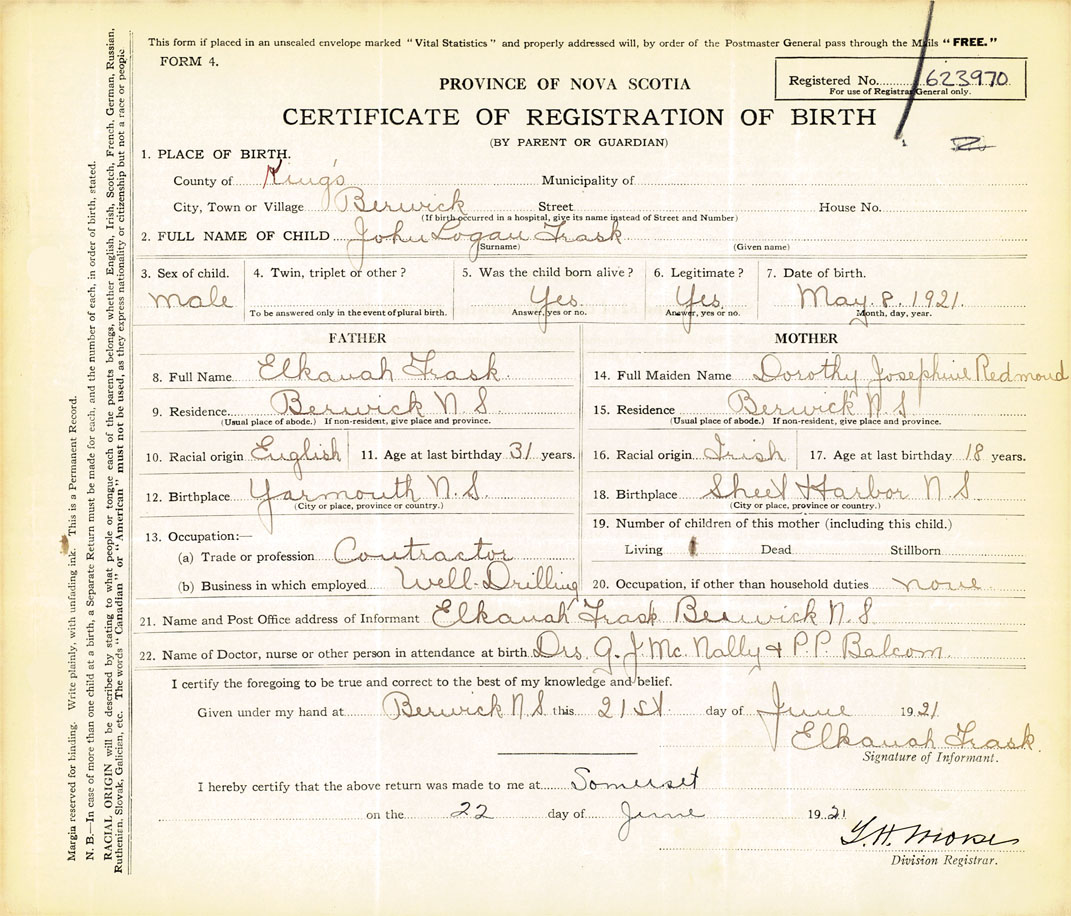 This form if placed in an unsealed envelope marked "Vital Statistics" and properly addressed will, by order of the Postmaster General pass through the Mails "FREE."
FORM 4.
Registered No. 623970
For use of Registrar General only.
PROVINCE OF NOVA SCOTIA
CERTIFICATE OF REGISTRATION OF BIRTH
(BY PARENT OR GUARDIAN)
1. PLACE OF BIRTH.
County of King's Municipality of
City, Town or Village Berwick Street House No.
(If birth occurred in a hospital, give its name instead of Street and Number)
2. FULL NAME OF CHILD John Logan Trask
(Surname) (Given name)
3. Sex of child. 4. Twin, triplet or other? 5. Was the child born alive? 6. Legitimate? 7. Date of birth.
male Yes. Yes. May. 8. 1921.
To be answered only in the event of plural birth. Answer, yes or no. Answer, yes or no. Month, day, year.
FATHER MOTHER
8. Full Name Elkanah Trask. 14. Full Maiden Name Dorothy Josephine Redmond
9. Residence Berwick N.S. 15. Residence Berwick N.S.
(Usual place of abode.) If non-resident, give place and province. (Usual place of abode.) If non-resident, give place and province.
10. Racial origin English 11. Age at last birthday 31 years. 16. Racial origin Irish 17. Age at last birthday 18 years.
12. Birthplace Yarmouth N.S. 18. Birthplace Sheet Harbor N.S.
(City or place, province or country.) (City or place, province or country.)
13. Occupation:— 19. Number of children of this mother (including this child.)
(a) Trade or profession Contractor Living 1 Dead Stillborn
(b) Business in which employed Well-Drilling 20. Occupation, if other than household duties none
21. Name and Post Office address of Informant Elkanah Trask Berwick N.S.
22. Name of Doctor, nurse or other person in attendance at birth Drs. G. J. McNally & P.P. Balcom.
I certify the foregoing to be true and correct to the best of my knowledge and belief.
Given under my hand at Berwick N.S. this 21st day of June 1921
Elkanah Trask.
Signature of Informant.
I hereby certify that the above return was made to me at Somerset
on the 22 day of June 1921
Morse
Division Registrar.
Margia reserved for binding. Write plainly, with unfading ink. This is a Permanent Record.
N. B.—In case of more than one child at a birth, a Separate Return must be made for each, and the number of each, in order of birth, stated.
RACIAL ORIGIN will be described by stating to what people or tongue each of the parents belongs, whether English, Irish, Scotch, French, German, Russian,
Ruthenian, Slovak, Galician, etc. The words "Canadian" or "American" must not be used, as they express nationality or citizenship but not a race or people